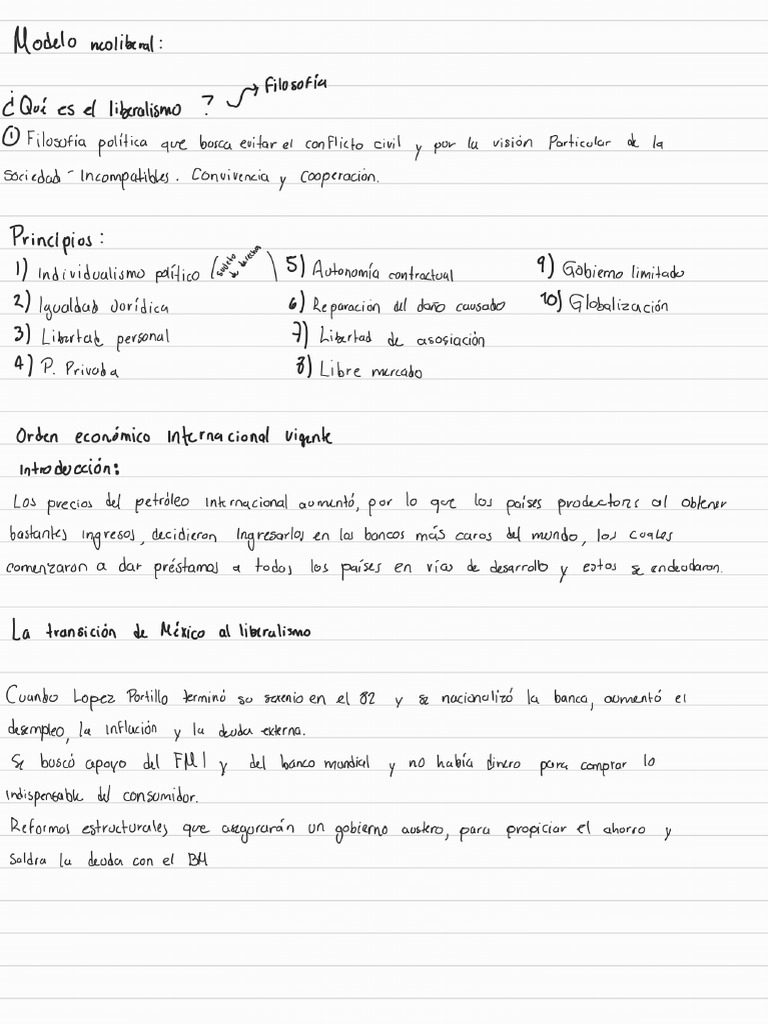 Modelo neoliberal:
¿Qué es el liberalismo ? → Filosofía
① Filosofía política que busca evitar el conflicto civil y por la visión Particular de la
Sociedad - Incompatibles. Convivencia y Cooperación.
Principios:
1) Individualismo político (sujeto de derecho)
2) Igualdad Jurídica
3) Libertade personal
4) P. Privada
5) Autonomía contractual
6) Reparación del daño causado
7) Libertad de asosiación
8) Libre mercado
9) Gobierno limitado
10) Globalización
Orden económico internacional vigente
Introducción:
Los precios del petróleo internacional aumentó, por lo que los países productores al obtener
bastantes ingresos, decidieron ingresarlos en los bancos más caros del mundo, los cuales
comenzaron a dar préstamos a todos los países en vías de desarrollo y estos se endeudaron.
La transición de México al liberalismo
Cuando Lopez Portillo terminó su sexenio en el 82 y se nacionalizó la banca, aumentó el
desempleo, la inflación y la deuda externa.
Se buscó apoyo del FMI y del banco mundial y no había dinero para comprar lo
indispensable del consumidor.
Reformas estructurales que aseguraran un gobierno austero, para propiciar el ahorro y
Saldra la deuda con el BM